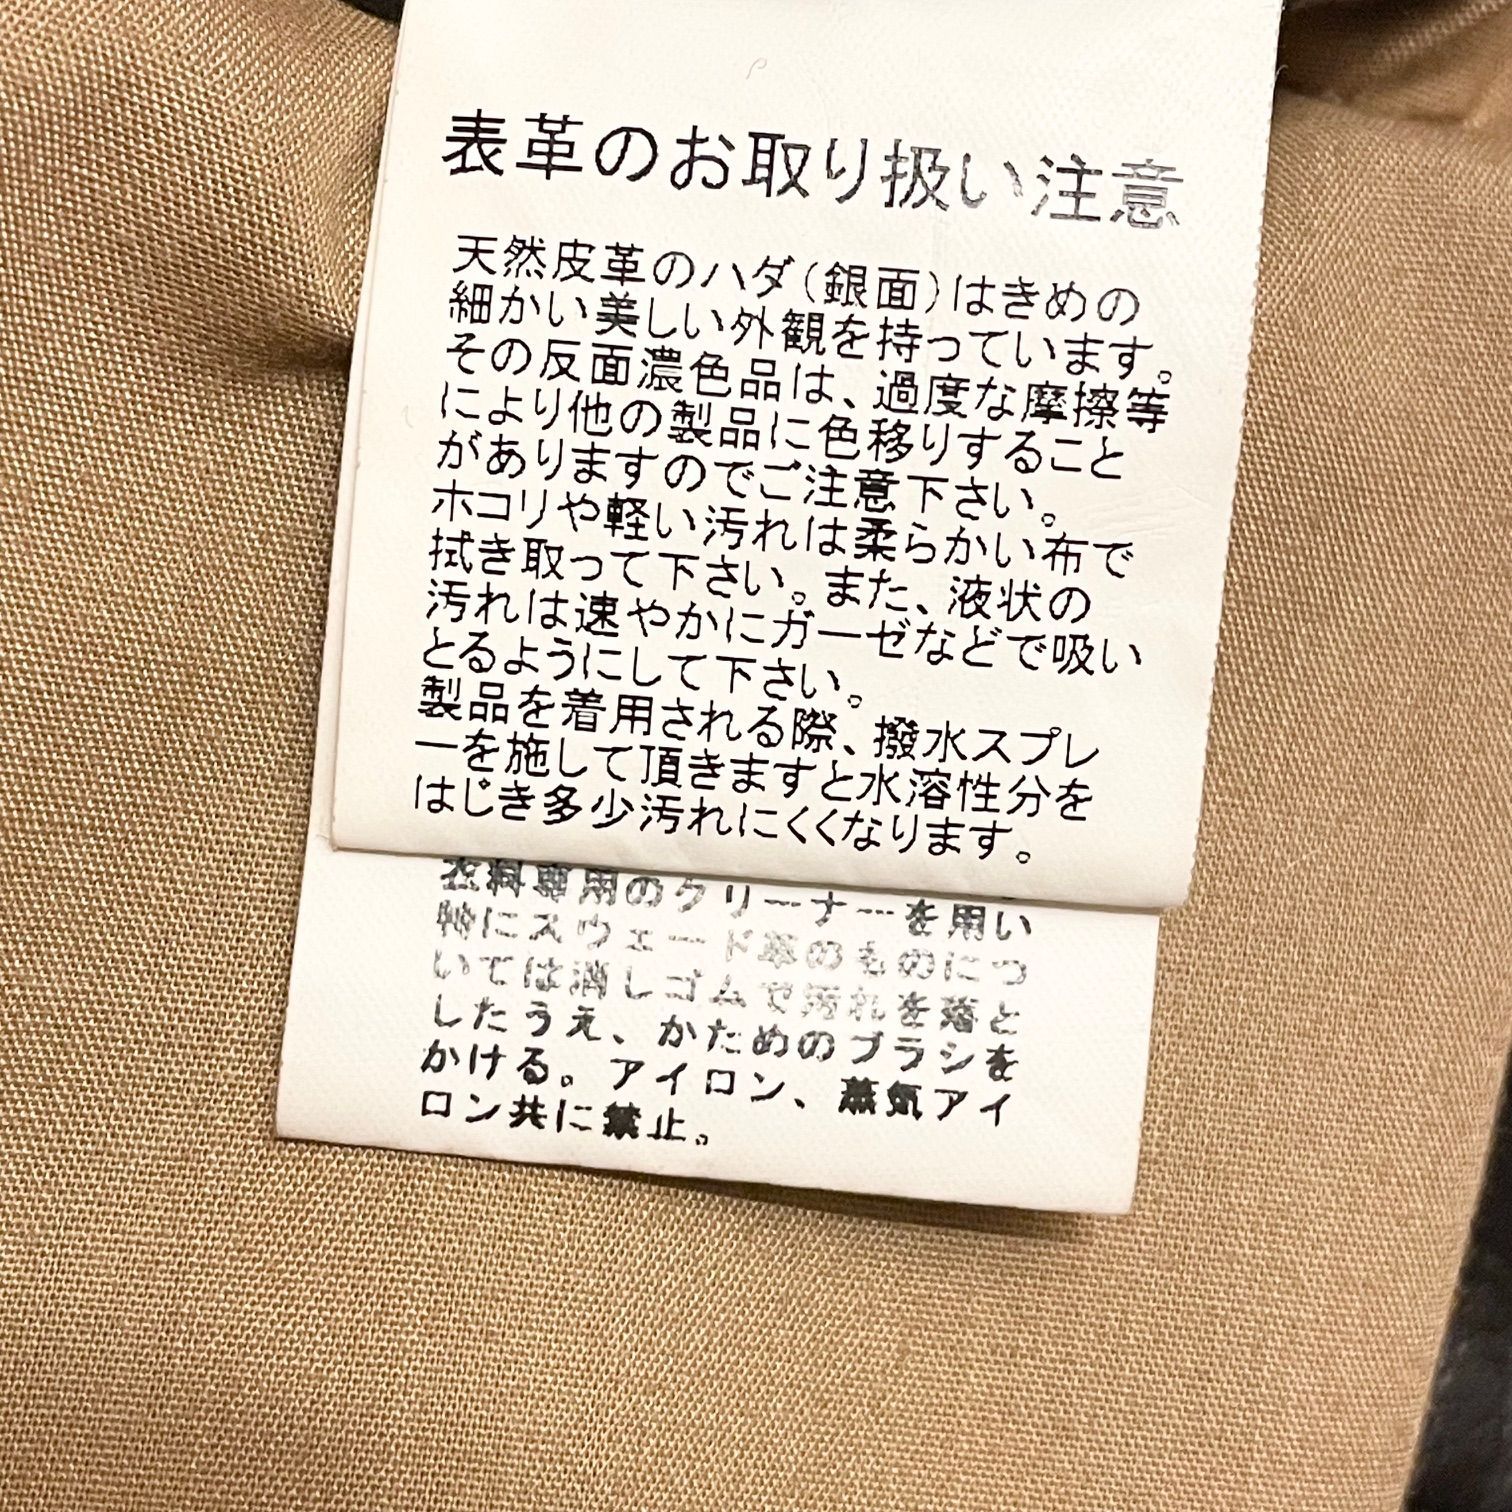 表革のお取り扱い注意
天然皮革のハダ(銀面)はきめの
細かい美しい外観を持っています。
その反面濃色品は、過度な摩擦等
により他の製品に色移りすること
がありますのでご注意下さい。
ホコリや軽い汚れは柔らかい布で
拭き取って下さい。また、液状の
汚れは速やかにガーゼなどで吸い
とるようにして下さい。
製品を着用される際、撥水スプレ
ーを施して頂きますと水溶性分を
はじき多少汚れにくくなります。
衣料専用のクリーナーを用い
特にスウェード革のものにつ
いては消しゴムで汚れを落と
したうえ、かためのブラシを
かける。アイロン、蒸気アイ
ロン共に禁止。